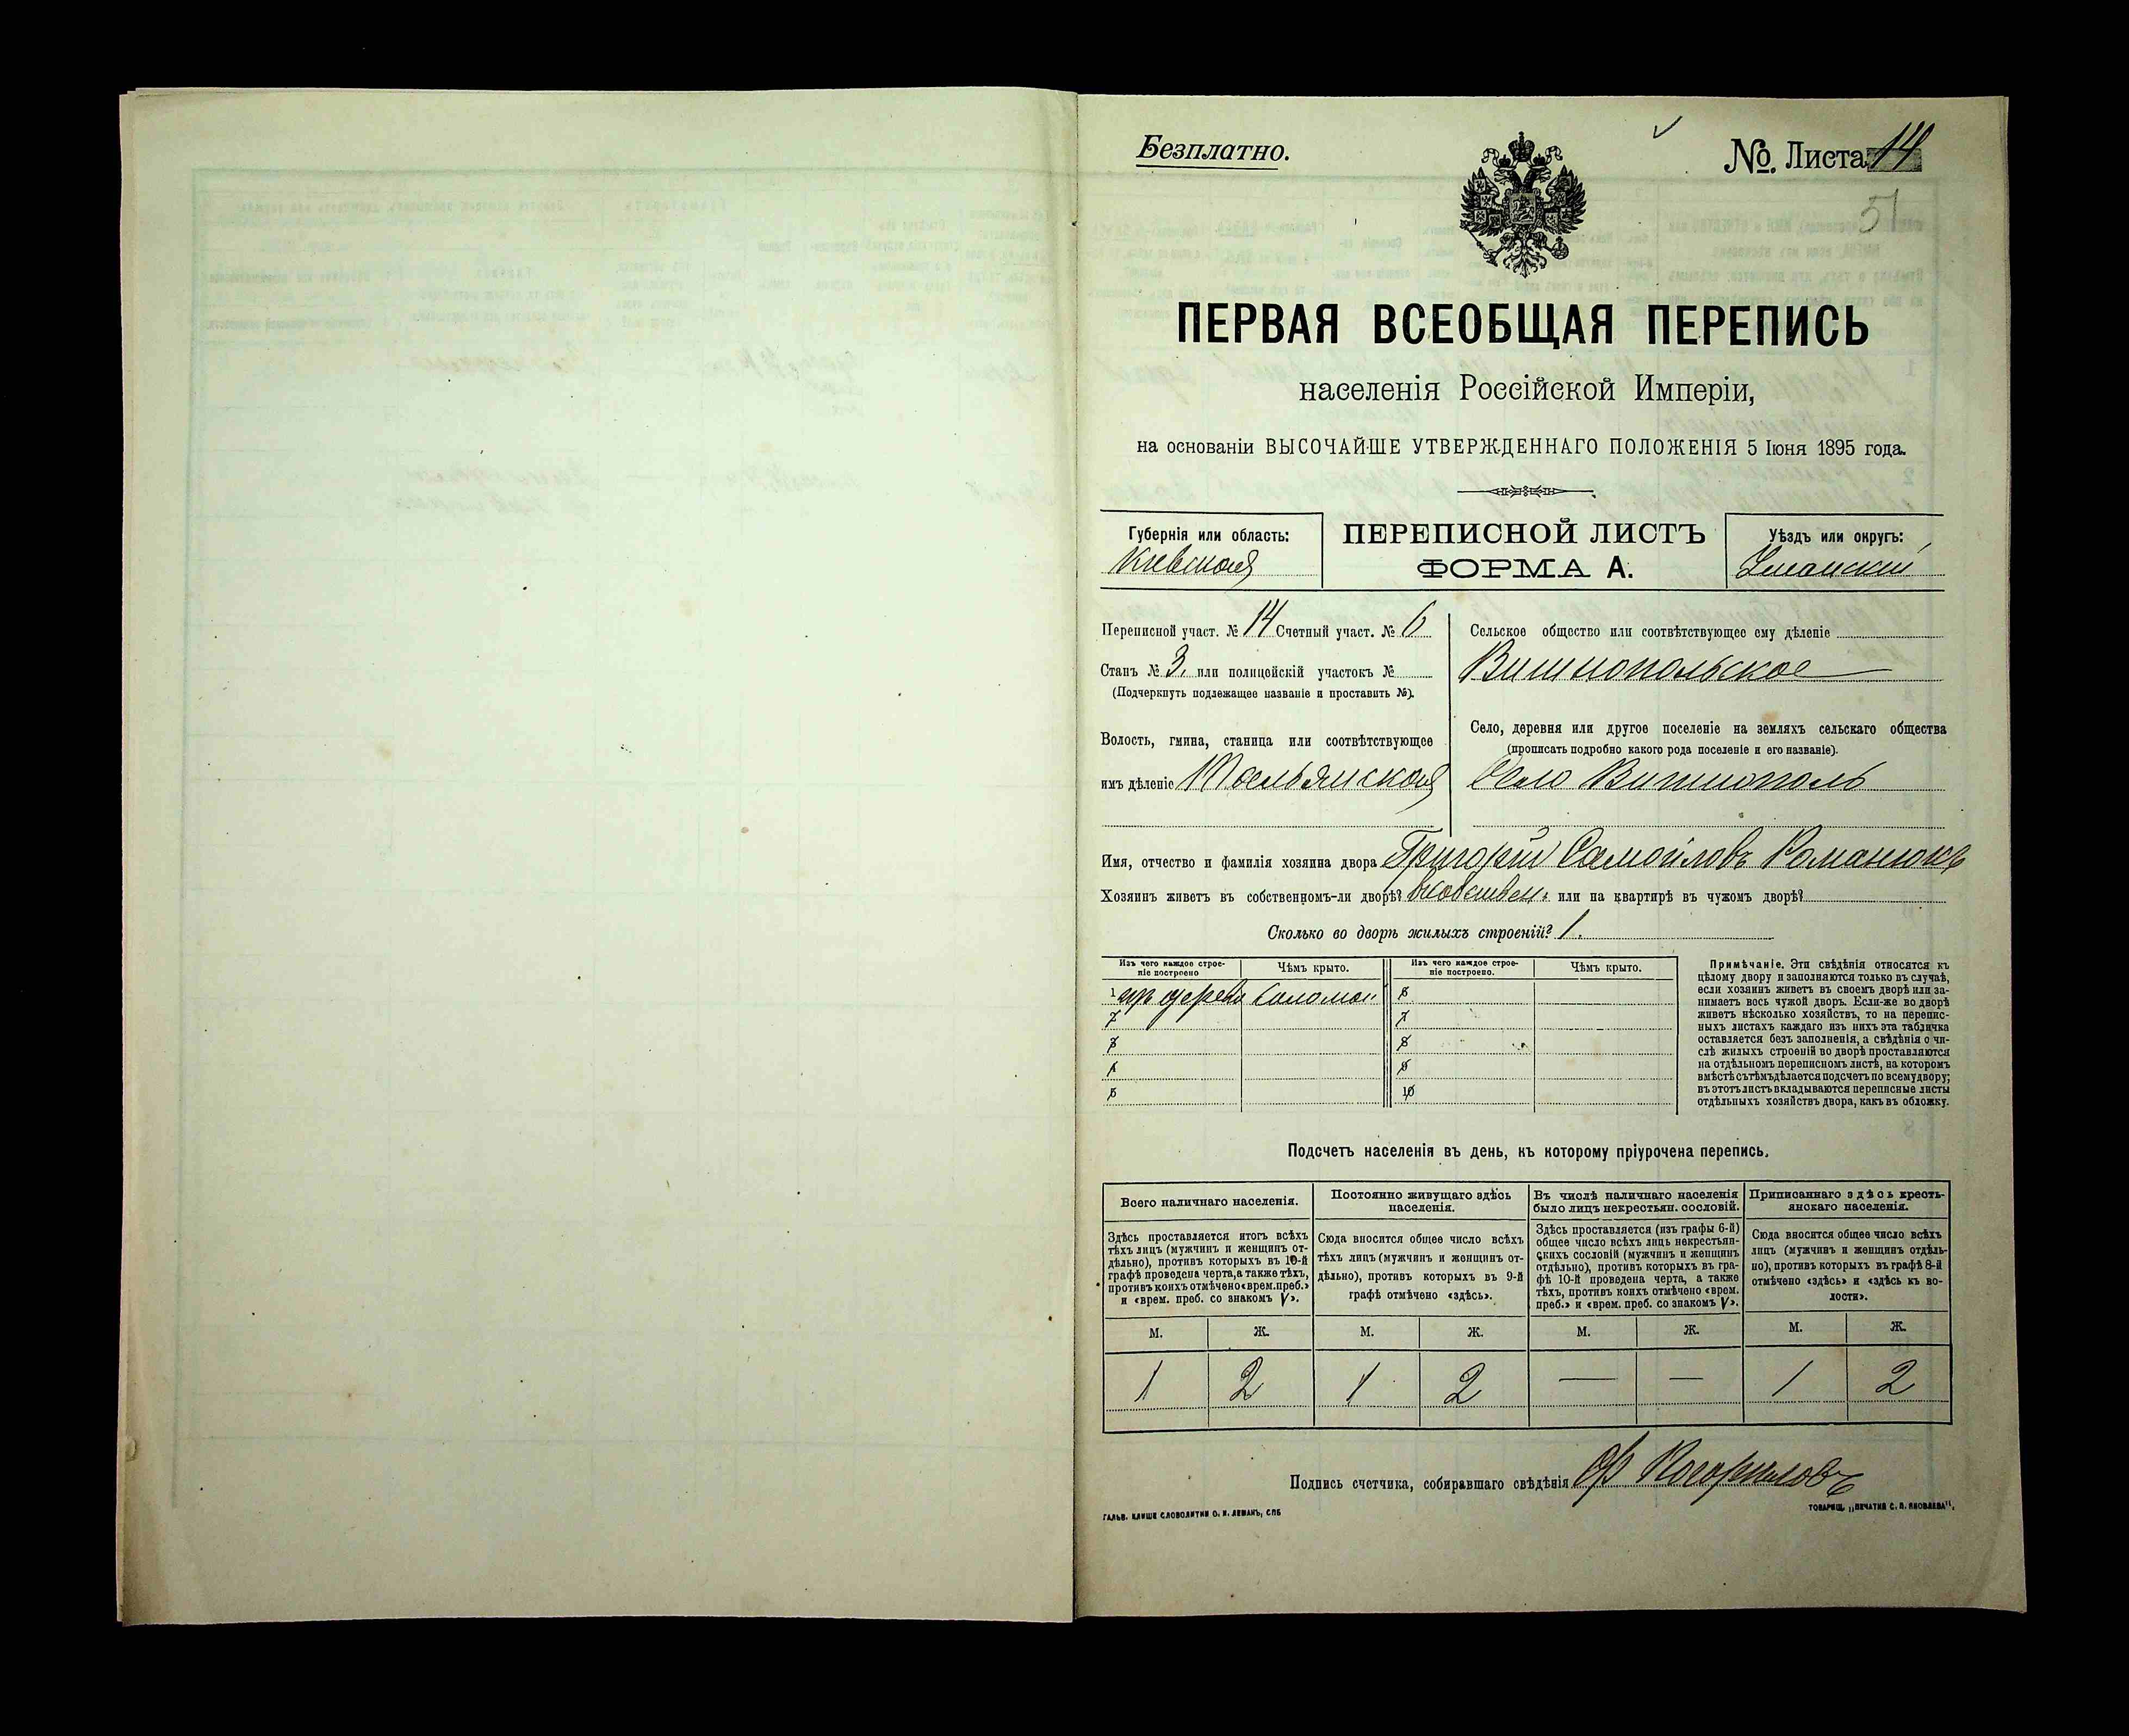 Безплатно.
№ Листа 14
51
ПЕРВАЯ ВСЕОБЩАЯ ПЕРЕПИСЬ
населенія Россійской Имперіи,
на основаніи ВЫСОЧАЙШЕ УТВЕРЖДЕННАГО ПОЛОЖЕНІЯ 5 Іюня 1895 года.
Губернія или область:
Кіевская
ПЕРЕПИСНОЙ ЛИСТЪ
ФОРМА А.
Уѣздъ или округъ:
Уманскій
Переписной участ. № 14 Счетный участ. № 6
Станъ № 3, или полицейскій участокъ №
(Подчеркнуть подлежащее названіе и проставить №).
Волость, гмина, станица или соотвѣтствующее
имъ дѣленіе Тальянская
Сельское общество или соотвѣтствующее ему дѣленіе
Вишнопольское
Село, деревня или другое поселеніе на земляхъ сельскаго общества
(прописать подробно какого рода поселеніе и его названіе).
Село Вишнополь
Имя, отчество и фамилія хозяина двора Григорій Самойловъ Романюкъ
Хозяинъ живетъ въ собственномъ-ли дворѣ? въ собствен. или на квартирѣ въ чужомъ дворѣ?
Сколько во дворѣ жилыхъ строеній? 1.
Изъ чего каждое строе-
ніе построено
Чѣмъ крыто.
Изъ чего каждое строе-
ніе построено.
Чѣмъ крыто.
1 изъ дерева Соломою
2
3
4
5
6
7
8
9
10
Примѣчаніе. Эти свѣдѣнія относятся къ
цѣлому двору и заполняются только въ случаѣ,
если хозяинъ живетъ въ своемъ дворѣ или за-
нимаетъ весь чужой дворъ. Если-же во дворѣ
живетъ нѣсколько хозяйствъ, то на перепис-
ныхъ листахъ каждаго изъ нихъ эта табличка
оставляется безъ заполненія, а свѣдѣнія о чи-
слѣ жилыхъ строеній во дворѣ проставляются
на отдѣльномъ переписномъ листѣ, на которомъ
вмѣстѣ съ тѣмъ дѣлается подсчетъ по всему двору;
въ этотъ листъ вкладываются переписные листы
отдѣльныхъ хозяйствъ двора, какъ въ обложку.
Подсчетъ населенія въ день, къ которому пріурочена перепись.
Всего наличнаго населенія.
Здѣсь проставляется итогъ всѣхъ
тѣхъ лицъ (мужчинъ и женщинъ от-
дѣльно), противъ которыхъ въ 10-й
графѣ проведена черта, а также тѣхъ,
противъ коихъ отмѣчено «врем. преб.»
и «врем. преб. со знакомъ V».
Постоянно живущаго здѣсь
населенія.
Сюда вносится общее число всѣхъ
тѣхъ лицъ (мужчинъ и женщинъ от-
дѣльно), противъ которыхъ въ 9-й
графѣ отмѣчено «здѣсь».
Въ числѣ наличнаго населенія
было лицъ некрестьян. сословій.
Здѣсь проставляется (изъ графы 6-й)
общее число всѣхъ лицъ некрестьян-
скихъ сословій (мужчинъ и женщинъ
отдѣльно), противъ которыхъ въ гра-
фѣ 10-й проведена черта, а также
тѣхъ, противъ коихъ отмѣчено «врем.
преб.» и «врем. преб. со знакомъ V».
Приписаннаго здѣсь кресть-
янскаго населенія.
Сюда вносится общее число всѣхъ
лицъ (мужчинъ и женщинъ отдѣль-
но), противъ которыхъ въ графѣ 8-й
отмѣчено «здѣсь» и «здѣсь къ во-
лости».
М. Ж. М. Ж. М. Ж. М. Ж.
1 2 1 2 — — 1 2
Подпись счетчика, собиравшаго свѣдѣнія
ГАЛЬВ. КЛИШЕ СЛОВОЛИТНИ О. И. ЛЕМАНЪ, СПБ
ТОВАРИЩ. „ПЕЧАТНЯ С. П. ЯКОВЛЕВА".